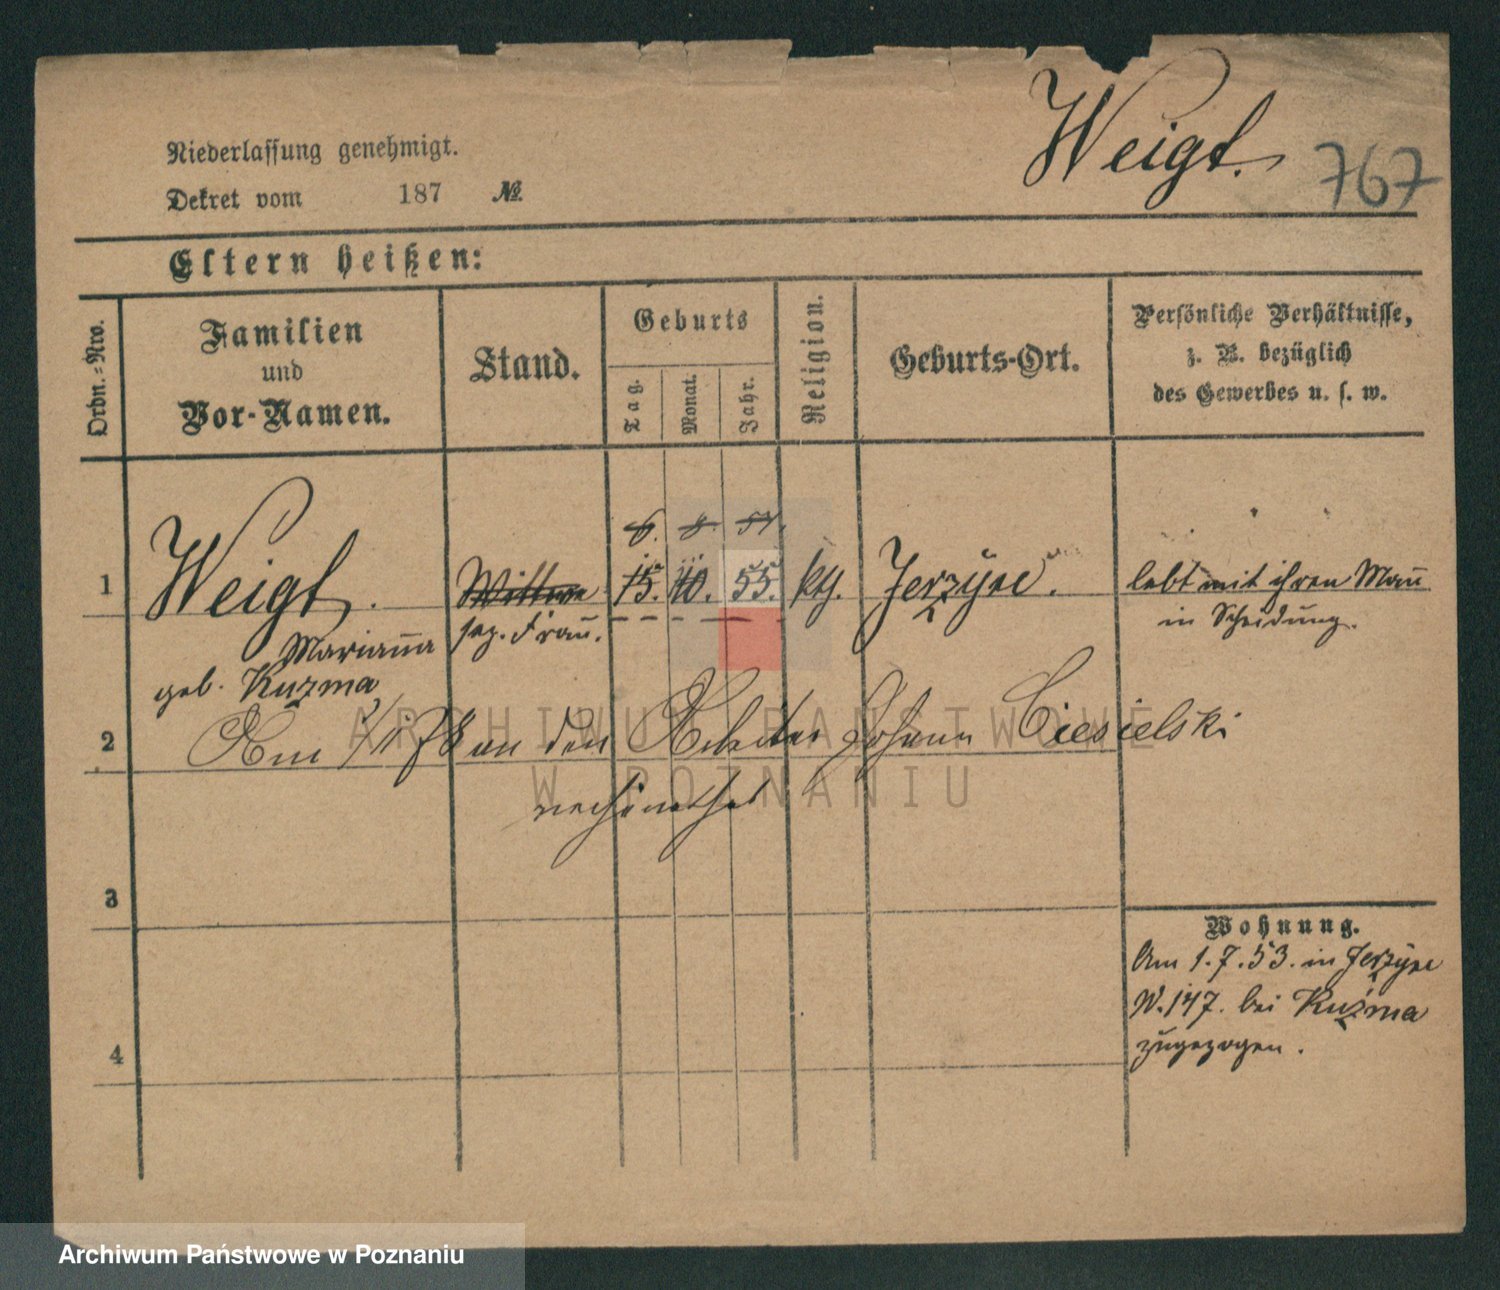 Weigt.
767
Niederlassung genehmigt.
Dekret vom 187 №.
Eltern heißen:
Ordn.-Nro.
Familien
und
Vor-Namen.
Stand.
Geburts
Tag.
Monat.
Jahr.
Religion.
Geburts-Ort.
Persönliche Verhältnisse,
z. B. bezüglich
des Gewerbes u. s. w.
6. 8. 54.
1 Weigt. Wittwe 15. 10. 55. kth. Jerzyce. lebt mit ihren Mann
Marianna Frau. in Scheidung.
geb. Kuzma
2 Am an den Johann Ciesielski
3
Wohnung.
Am 1.7.53. in Jerzyce
N. 147. bei Kuzma
zugezogen.
4
ARCHIWUM PAŃSTWOWE
W POZNANIU
Archiwum Państwowe w Poznaniu